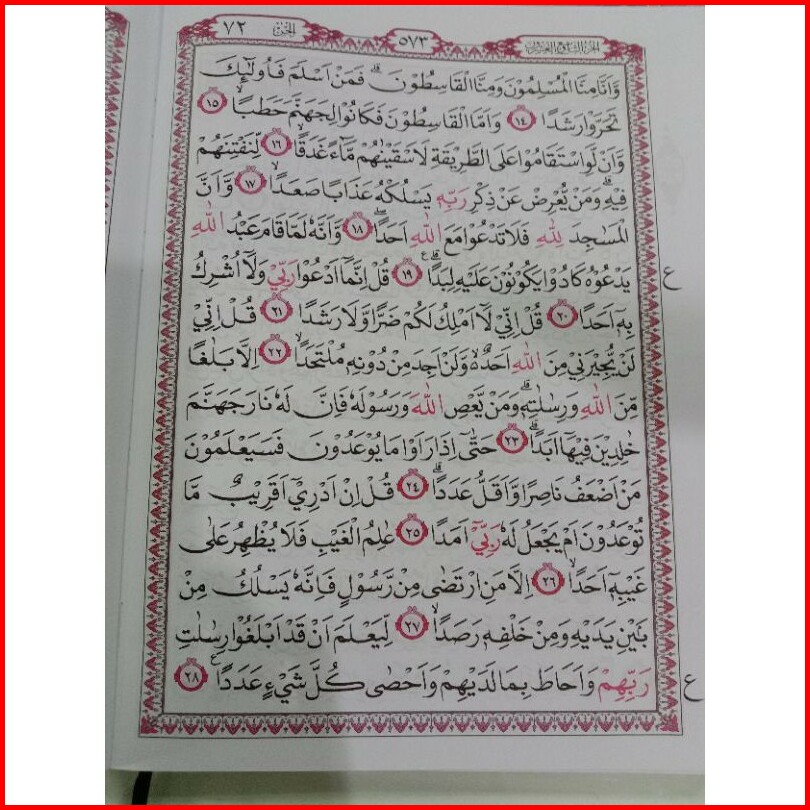 الجن ٧٢
٥٧٣
الجزء التاسع والعشرون
وَّاَنَّا مِنَّا الْمُسْلِمُوْنَ وَمِنَّا الْقَاسِطُوْنَۗ فَمَنْ اَسْلَمَ فَاُولٰۤىِٕكَ
تَحَرَّوْا رَشَدًا ١٤ وَاَمَّا الْقَاسِطُوْنَ فَكَانُوْا لِجَهَنَّمَ حَطَبًاۙ ١٥
وَّاَنْ لَّوِ اسْتَقَامُوْا عَلَى الطَّرِيْقَةِ لَاَسْقَيْنٰهُمْ مَّاۤءً غَدَقًاۙ ١٦ لِّنَفْتِنَهُمْ
فِيْهِۗ وَمَنْ يُّعْرِضْ عَنْ ذِكْرِ رَبِّهٖ يَسْلُكْهُ عَذَابًا صَعَدًاۙ ١٧ وَّاَنَّ
الْمَسٰجِدَ لِلّٰهِ فَلَا تَدْعُوْا مَعَ اللّٰهِ اَحَدًاۖ ١٨ وَّاَنَّهٗ لَمَّا قَامَ عَبْدُ اللّٰهِ
يَدْعُوْهُ كَادُوْا يَكُوْنُوْنَ عَلَيْهِ لِبَدًاۗ ࣖ ١٩ قُلْ اِنَّمَآ اَدْعُوْا رَبِّيْ وَلَآ اُشْرِكُ
ع
بِهٖٓ اَحَدًا ٢٠ قُلْ اِنِّيْ لَآ اَمْلِكُ لَكُمْ ضَرًّا وَّلَا رَشَدًا ٢١ قُلْ اِنِّيْ
لَنْ يُّجِيْرَنِيْ مِنَ اللّٰهِ اَحَدٌ ەۙ وَّلَنْ اَجِدَ مِنْ دُوْنِهٖ مُلْتَحَدًاۙ ٢٢ اِلَّا بَلٰغًا
مِّنَ اللّٰهِ وَرِسٰلٰتِهٖۗ وَمَنْ يَّعْصِ اللّٰهَ وَرَسُوْلَهٗ فَاِنَّ لَهٗ نَارَ جَهَنَّمَ
خٰلِدِيْنَ فِيْهَآ اَبَدًاۗ ٢٣ حَتّٰىٓ اِذَا رَاَوْا مَا يُوْعَدُوْنَ فَسَيَعْلَمُوْنَ
مَنْ اَضْعَفُ نَاصِرًا وَّاَقَلُّ عَدَدًاۗ ٢٤ قُلْ اِنْ اَدْرِيْٓ اَقَرِيْبٌ مَّا
تُوْعَدُوْنَ اَمْ يَجْعَلُ لَهٗ رَبِّيْٓ اَمَدًا ٢٥ عٰلِمُ الْغَيْبِ فَلَا يُظْهِرُ عَلٰى
غَيْبِهٖٓ اَحَدًاۙ ٢٦ اِلَّا مَنِ ارْتَضٰى مِنْ رَّسُوْلٍ فَاِنَّهٗ يَسْلُكُ مِنْۢ
بَيْنِ يَدَيْهِ وَمِنْ خَلْفِهٖ رَصَدًاۙ ٢٧ لِّيَعْلَمَ اَنْ قَدْ اَبْلَغُوْا رِسٰلٰتِ
رَبِّهِمْ وَاَحَاطَ بِمَا لَدَيْهِمْ وَاَحْصٰى كُلَّ شَيْءٍ عَدَدًا ࣖ ٢٨
ع